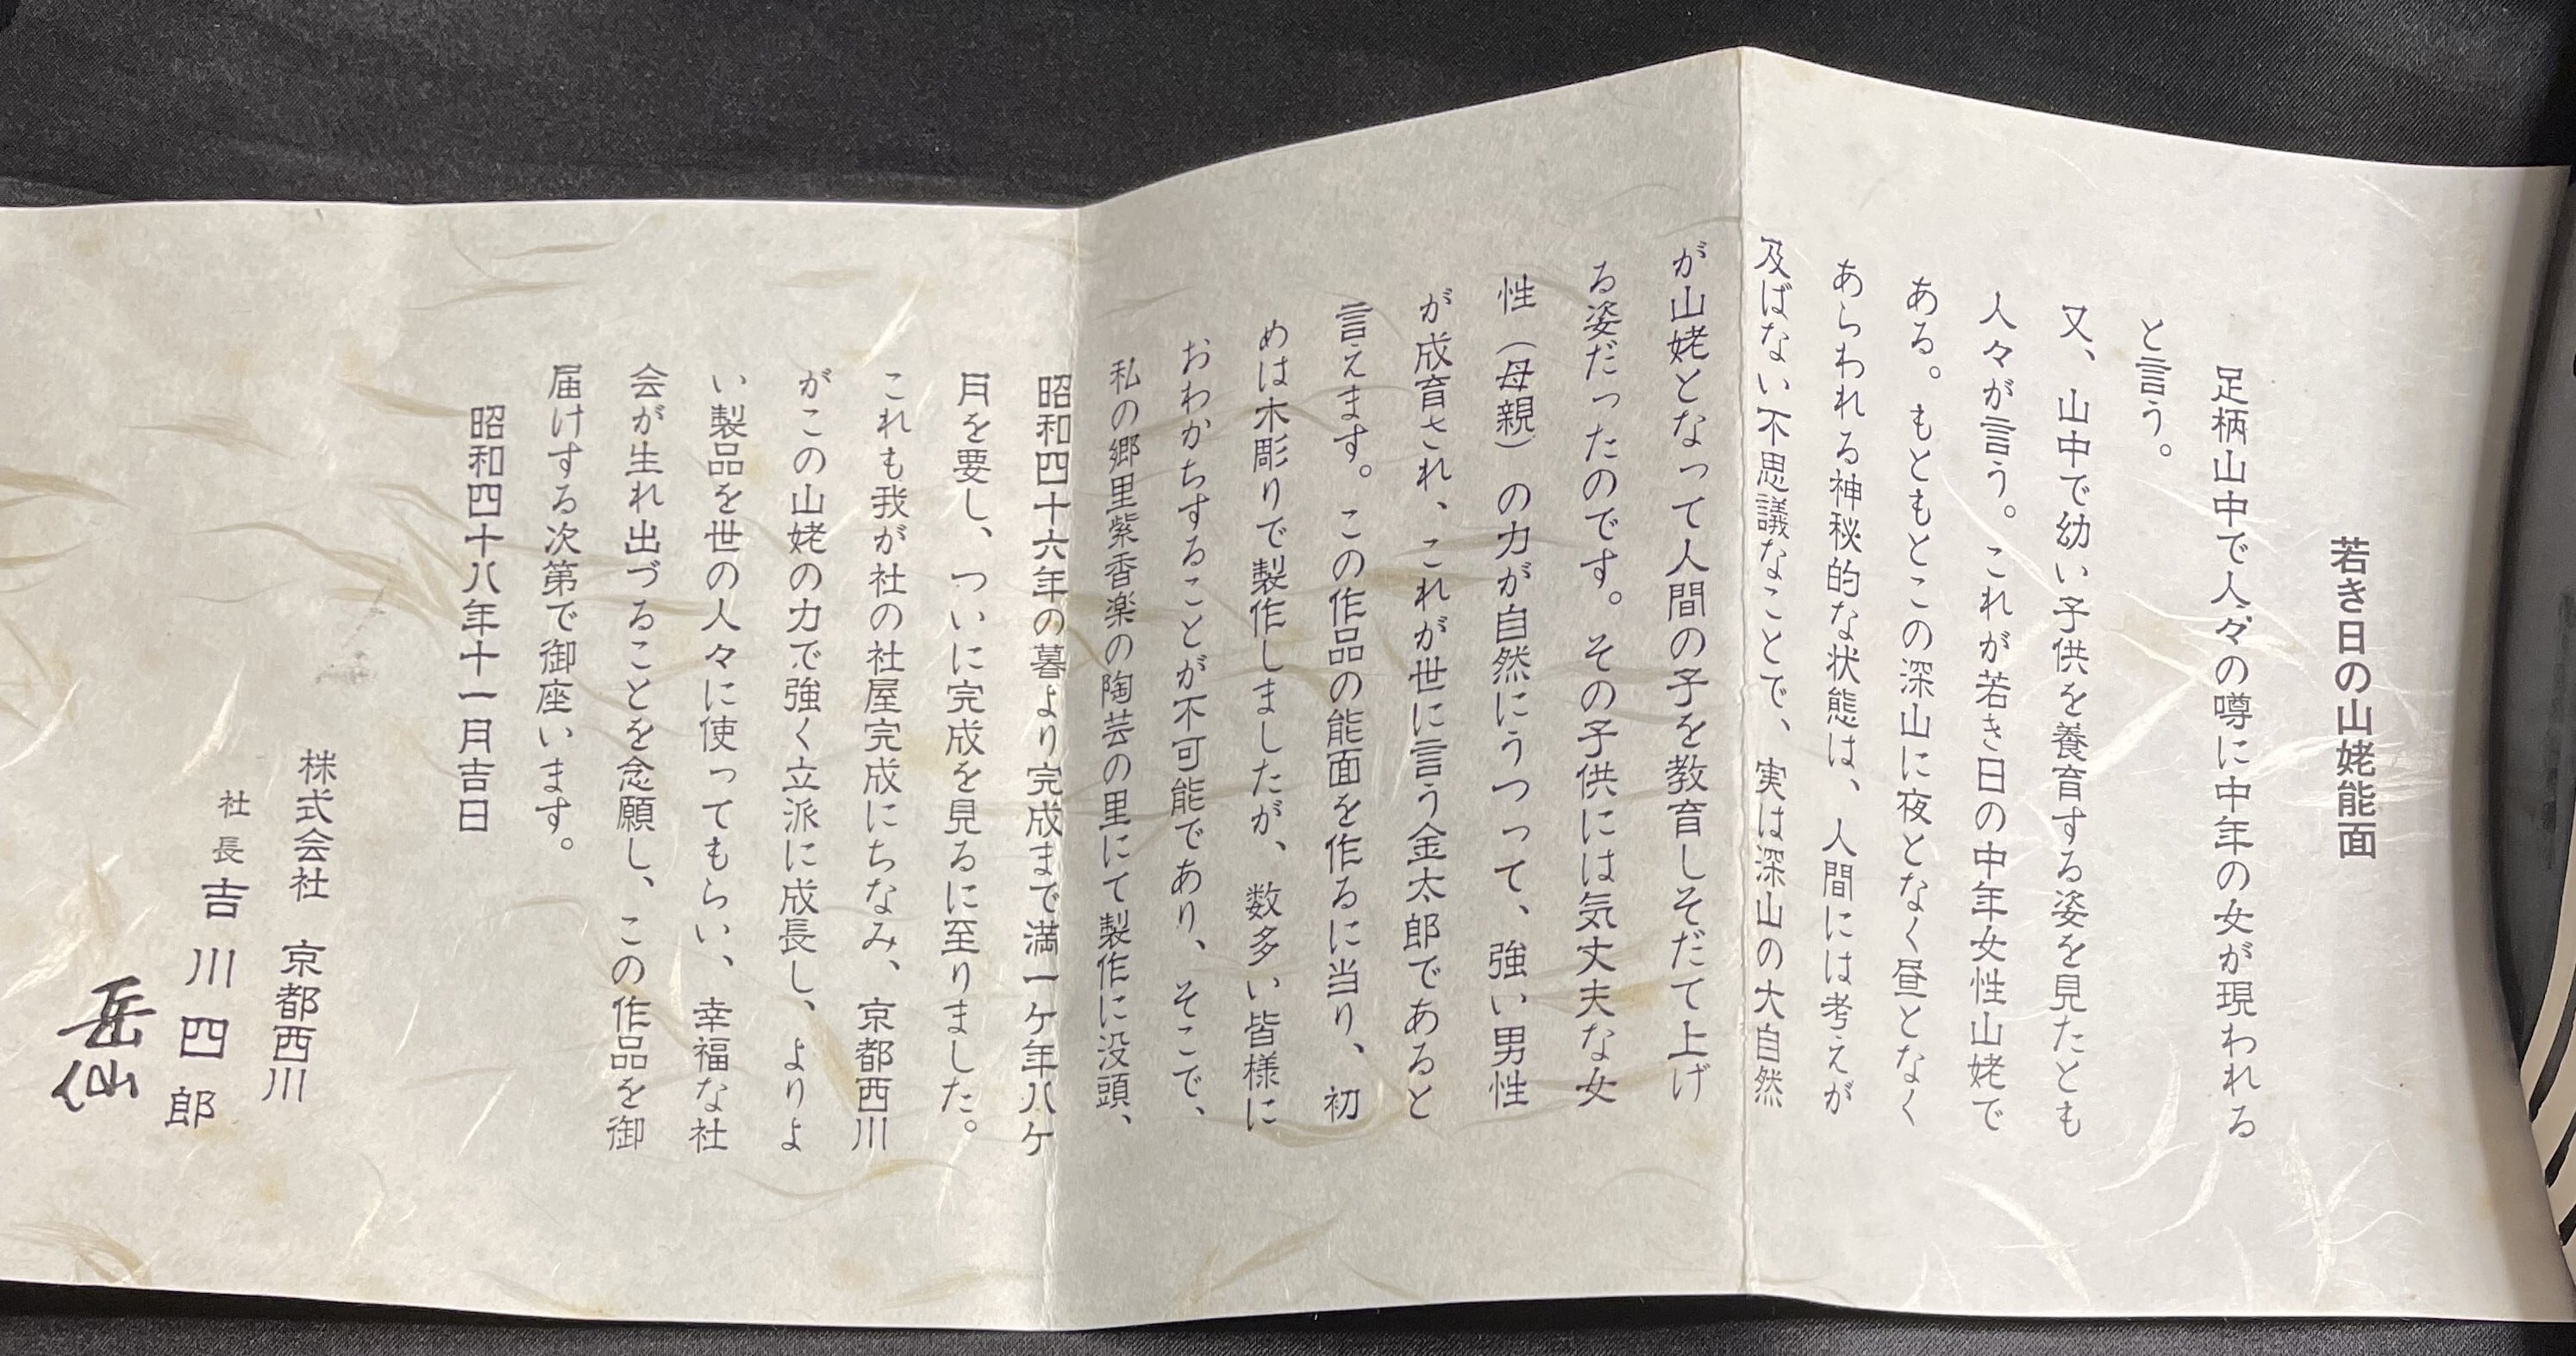 若き日の山姥能面
足柄山中で人々の噂に中年の女が現われる
と言う。
又、山中で幼い子供を養育する姿を見たとも
人々が言う。これが若き日の中年女性山姥で
ある。もともとこの深山に夜となく昼となく
あらわれる神秘的な状態は、人間には考えが
及ばない不思議なことで、実は深山の大自然
が山姥となって人間の子を教育しそだて上げ
る姿だったのです。その子供には気丈夫な女
性（母親）の力が自然にうつって、強い男性
が成育され、これが世に言う金太郎であると
言えます。この作品の能面を作るに当り、初
めは木彫りで製作しましたが、数多い皆様に
おわかちすることが不可能であり、そこで、
私の郷里紫香楽の陶芸の里にて製作に没頭、
昭和四十六年の暮より完成まで満一ケ年八ケ
月を要し、ついに完成を見るに至りました。
これも我が社の社屋完成にちなみ、京都西川
がこの山姥の力で強く立派に成長し、よりよ
い製品を世の人々に使ってもらい、幸福な社
会が生れ出づることを念願し、この作品を御
届けする次第で御座います。
昭和四十八年十一月吉日
株式会社 京都西川
社長 吉川四郎
岳仙